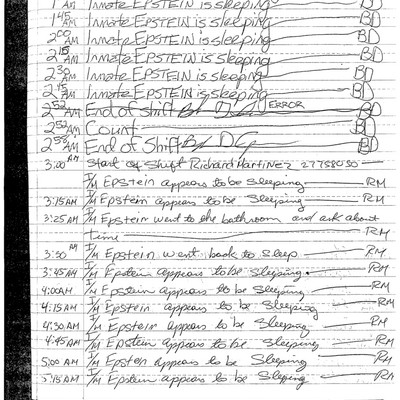 1 AM Inmate EPSTEIN is sleeping BD
1 45 AM Inmate EPSTEIN is sleeping BD
2 00 AM Inmate EPSTEIN is sleeping BD
2 15 AM Inmate EPSTEIN is sleeping BD
2 30 AM Inmate EPSTEIN is sleeping BD
2 45 AM Inmate EPSTEIN is sleeping BD
2 52 AM End of Shift ERROR BD
2 52 AM Count BD
2 58 AM End of Shift BD
3:00 AM Start of Shift Richard Martinez 27758050
I/M Epstein appears to be sleeping RM
3:15 AM I/M Epstein appears to be sleeping RM
3:25 AM I/M Epstein went to the bathroom and ask about
time RM
3:30 AM I/M Epstein went back to sleep RM
3:45 AM I/M Epstein appears to be sleeping. RM
4:00 AM I/M Epstein appears to be sleeping RM
4:15 AM I/M Epstein appears to be sleeping RM
4:30 AM I/M Epstein appears to be sleeping RM
4:45 AM I/M Epstein appears to be sleeping RM
5:00 AM I/M Epstein appears to be sleeping RM
5:15 AM I/M Epstein appears to be sleeping RM